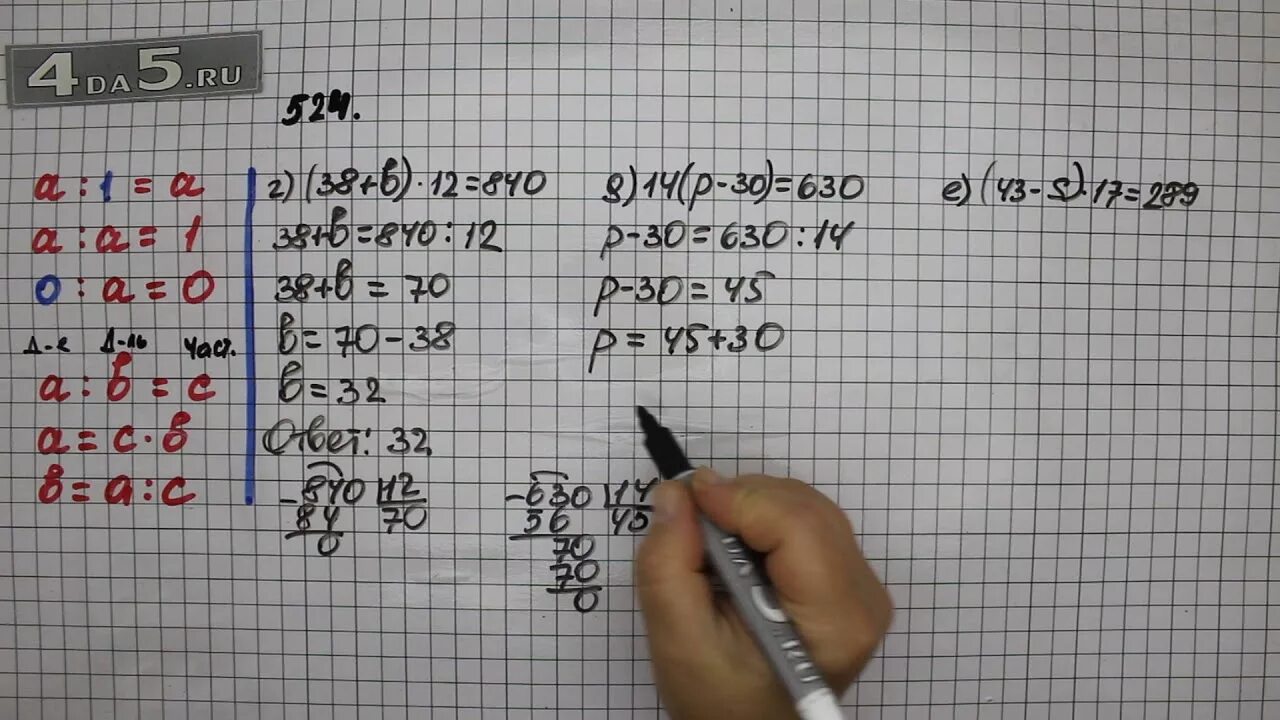 4DA5.RU
524.
a : 1 = a
a : a = 1
0 : a = 0
Д-е Д-ль част.
a : в = c
a = c · в
в = a : c
г) (38+в) · 12 = 840
38+в = 840 : 12
38+в = 70
в = 70 - 38
в = 32
Ответ: 32
- 840 12
84 70
0
д) 14(p-30) = 630
p-30 = 630 : 14
p-30 = 45
p = 45+30
- 630 14
56 45
70
70
0
е) (43-s) · 17 = 289